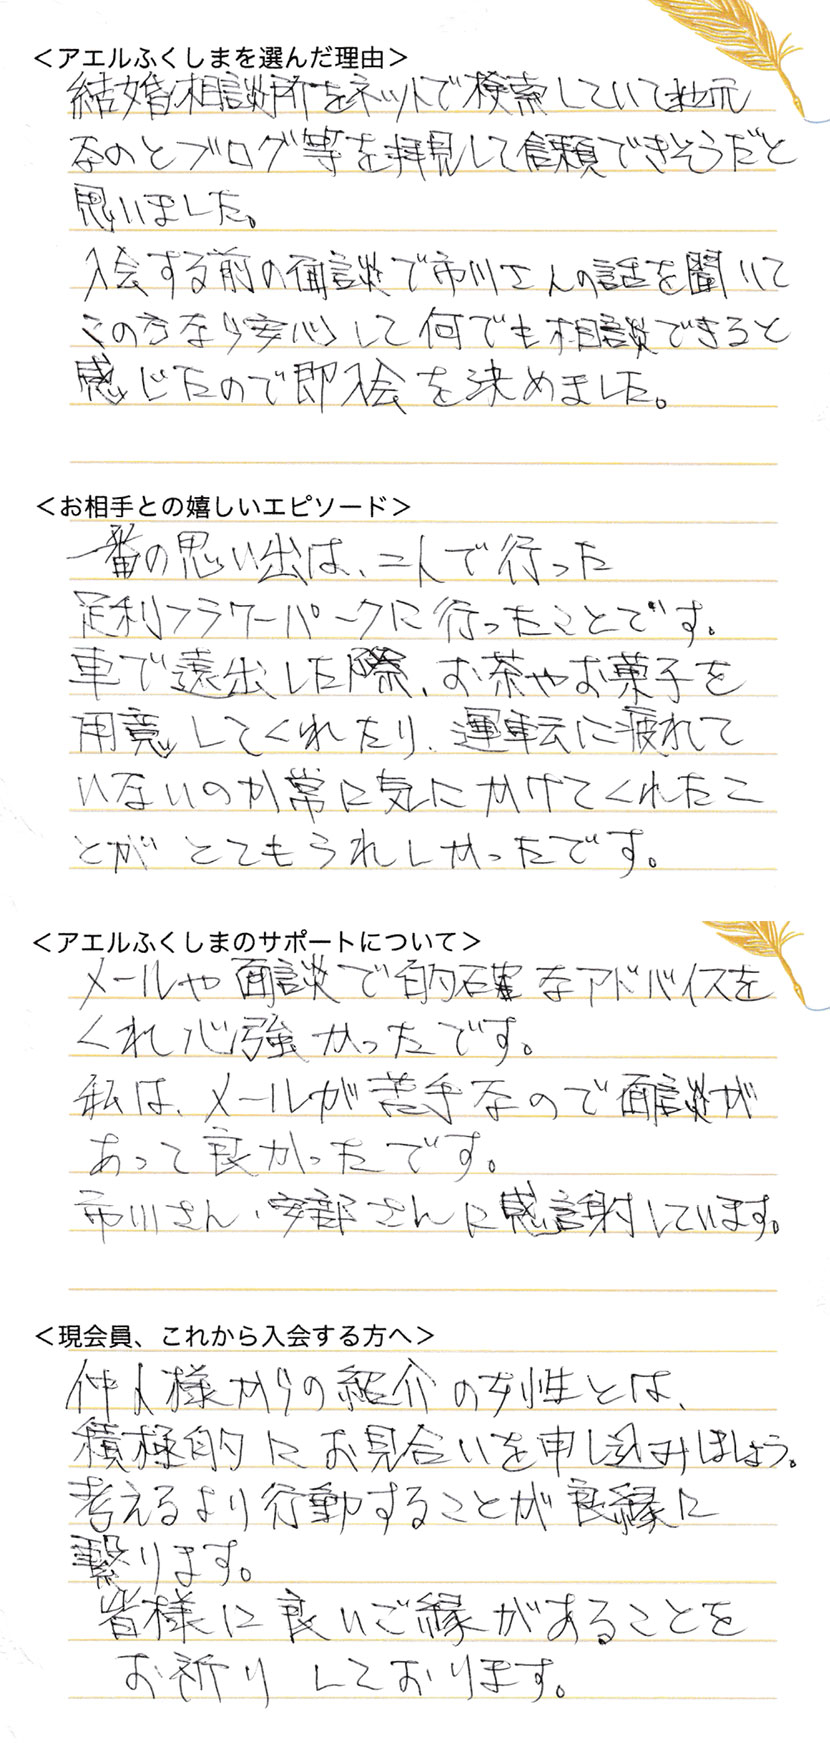 ＜アエルふくしまを選んだ理由＞
結婚相談所をネットで検索していて地元
なのとブログ等を拝見して信頼できそうだと
思いました。
入会する前の面談で市川さんの話を聞いて
この方なら安心して何でも相談できると
感じたので即入会を決めました。
＜お相手との嬉しいエピソード＞
一番の思い出は、二人で行った
足利フラワーパークに行ったことです。
車で遠出した際、お茶やお菓子を
用意してくれたり、運転に疲れて
いないのか常に気にかけてくれたこ
とがとてもうれしかったです。
＜アエルふくしまのサポートについて＞
メールや面談で的確なアドバイスを
くれ心強かったです。
私は、メールが苦手なので面談が
あって良かったです。
市川さん・安部さんに感謝しています。
＜現会員、これから入会する方へ＞
仲人様からの紹介の女性とは、
積極的にお見合いを申し込みましょう。
考えるより行動することが良縁に
繋ります。
皆様に良いご縁があることを
お祈りしております。